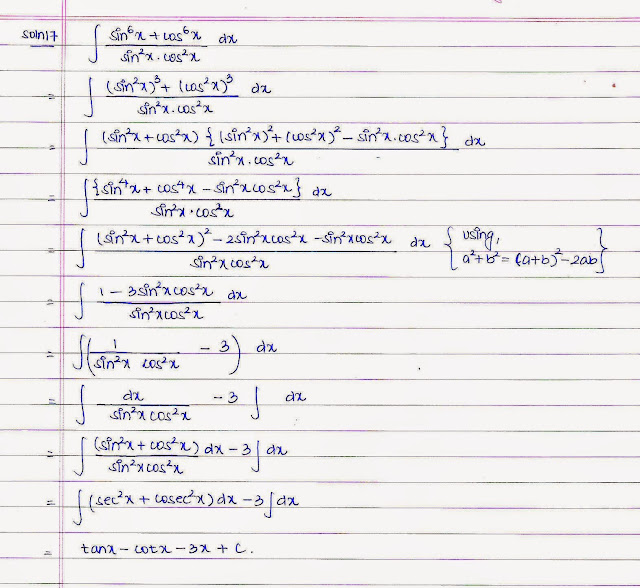 soln17 ∫ (sin⁶x + cos⁶x)/(sin²x.cos²x) dx
= ∫ ((sin²x)³ + (cos²x)³)/(sin²x.cos²x) dx
= ∫ ((sin²x + cos²x) {(sin²x)² + (cos²x)² – sin²x.cos²x})/(sin²x.cos²x) dx
= ∫ {sin⁴x + cos⁴x – sin²xcos²x}/(sin²x.cos²x) dx
= ∫ ((sin²x + cos²x)² – 2sin²xcos²x – sin²xcos²x)/(sin²xcos²x) dx { using, a²+b² = (a+b)² – 2ab }
= ∫ (1 – 3sin²xcos²x)/(sin²xcos²x) dx
= ∫ (1/(sin²x cos²x) – 3) dx
= ∫ dx/(sin²xcos²x) – 3 ∫ dx
= ∫ (sin²x + cos²x)/(sin²xcos²x) dx – 3 ∫ dx
= ∫ (sec²x + cosec²x) dx – 3 ∫ dx
= tanx – cotx – 3x + C.